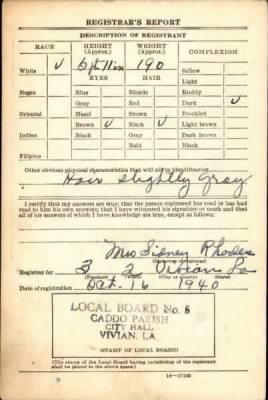 REGISTRAR'S REPORT
DESCRIPTION OF REGISTRANT
RACE HEIGHT (Approx.) WEIGHT (Approx.) COMPLEXION
White ✓ 5 ft 11 in 190 Sallow
EYES HAIR Light
Negro Blue Blonde Ruddy
Gray Red Dark ✓
Oriental Hazel Brown Freckled
Brown ✓ Black ✓ Light brown
Indian Black Gray Dark brown
Bald Black
Filipino
Other obvious physical characteristics that will aid in identification
Hair slightly Gray
I certify that my answers are true; that the person registered has read or has had
read to him his own answers; that I have witnessed his signature or mark and that
all of his answers of which I have knowledge are true, except as follows:
Mrs Sidney Rhodes
(Signature of registrar)
Registrar for 3 2 Vivian La
(Precinct) (Ward) (City or county) (State)
Date of registration Oct. 16 1940
LOCAL BOARD No. 5
CADDO PARISH
CITY HALL
VIVIAN, LA.
(STAMP OF LOCAL BOARD)
(The stamp of the Local Board having jurisdiction of the registrant
shall be placed in the above space.)